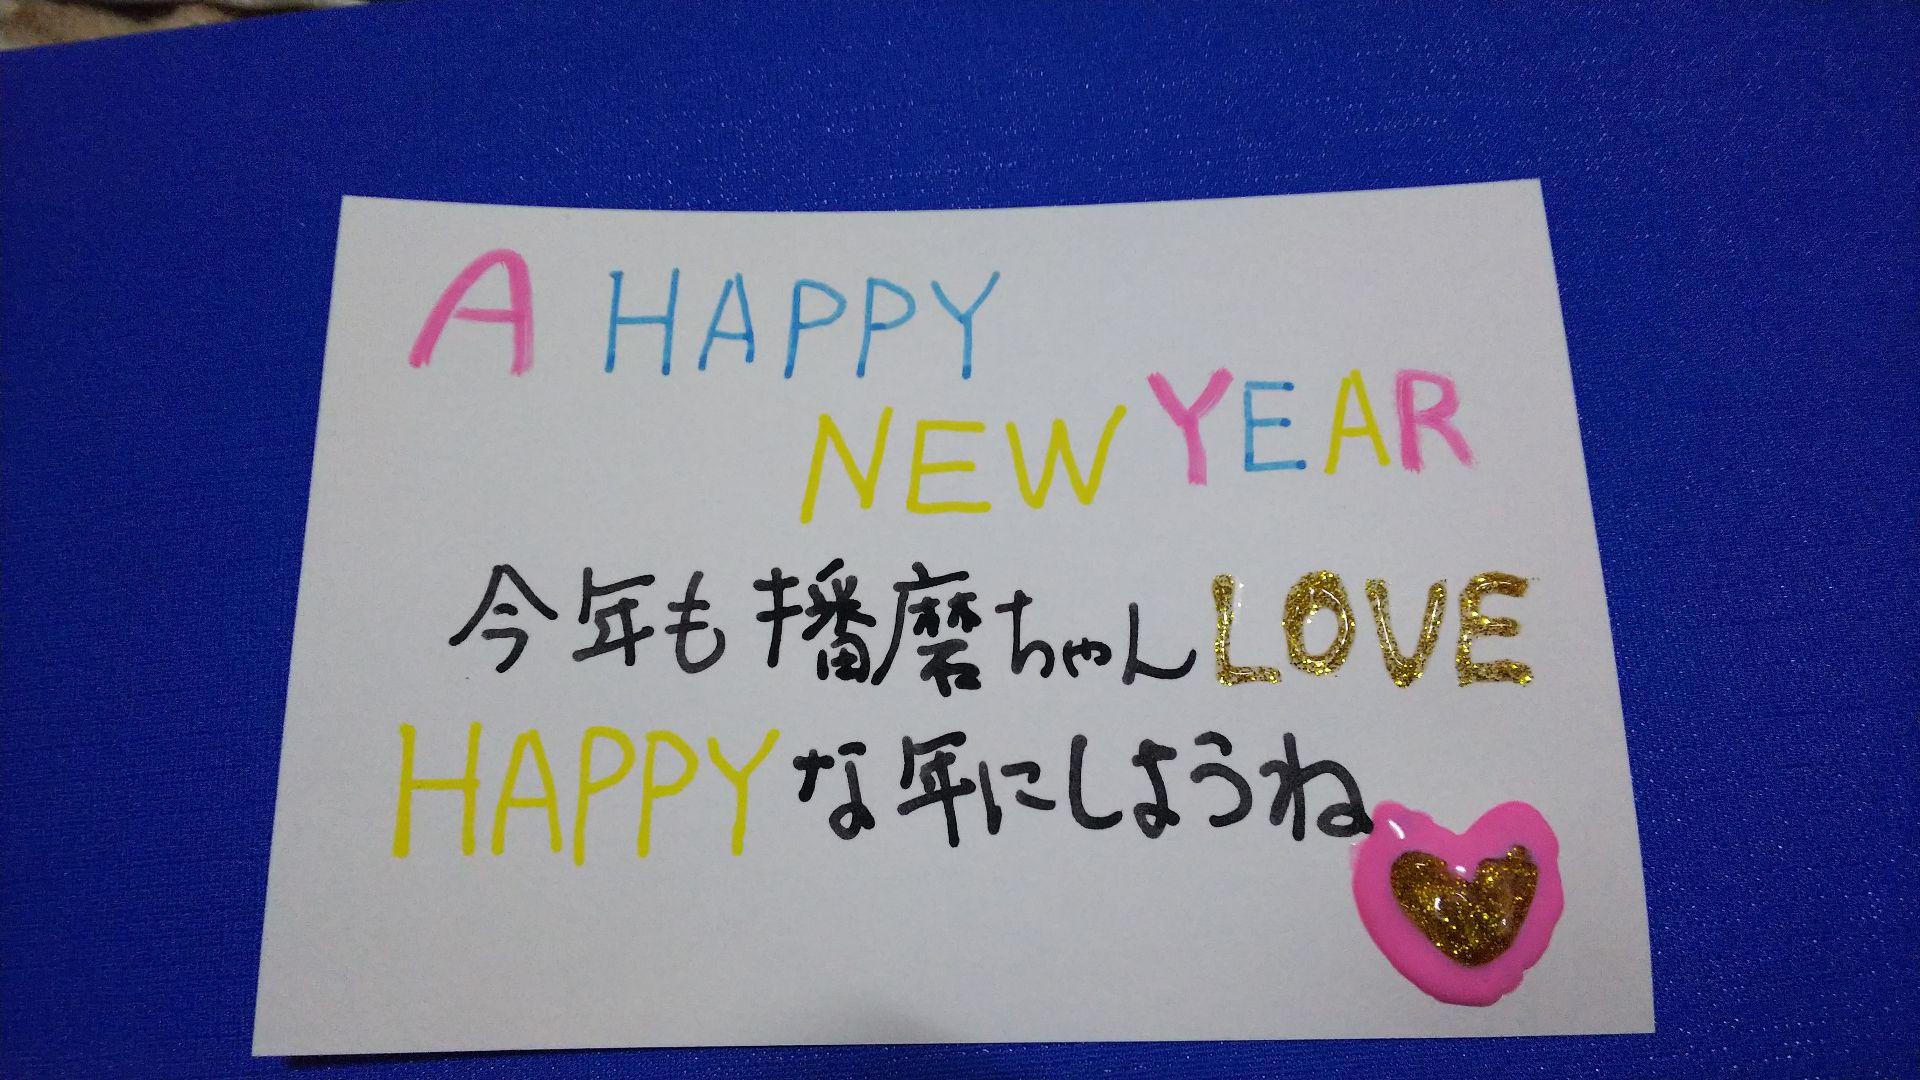 A HAPPY
NEW YEAR
今年も播磨ちゃんLOVE
HAPPYな年にしようね